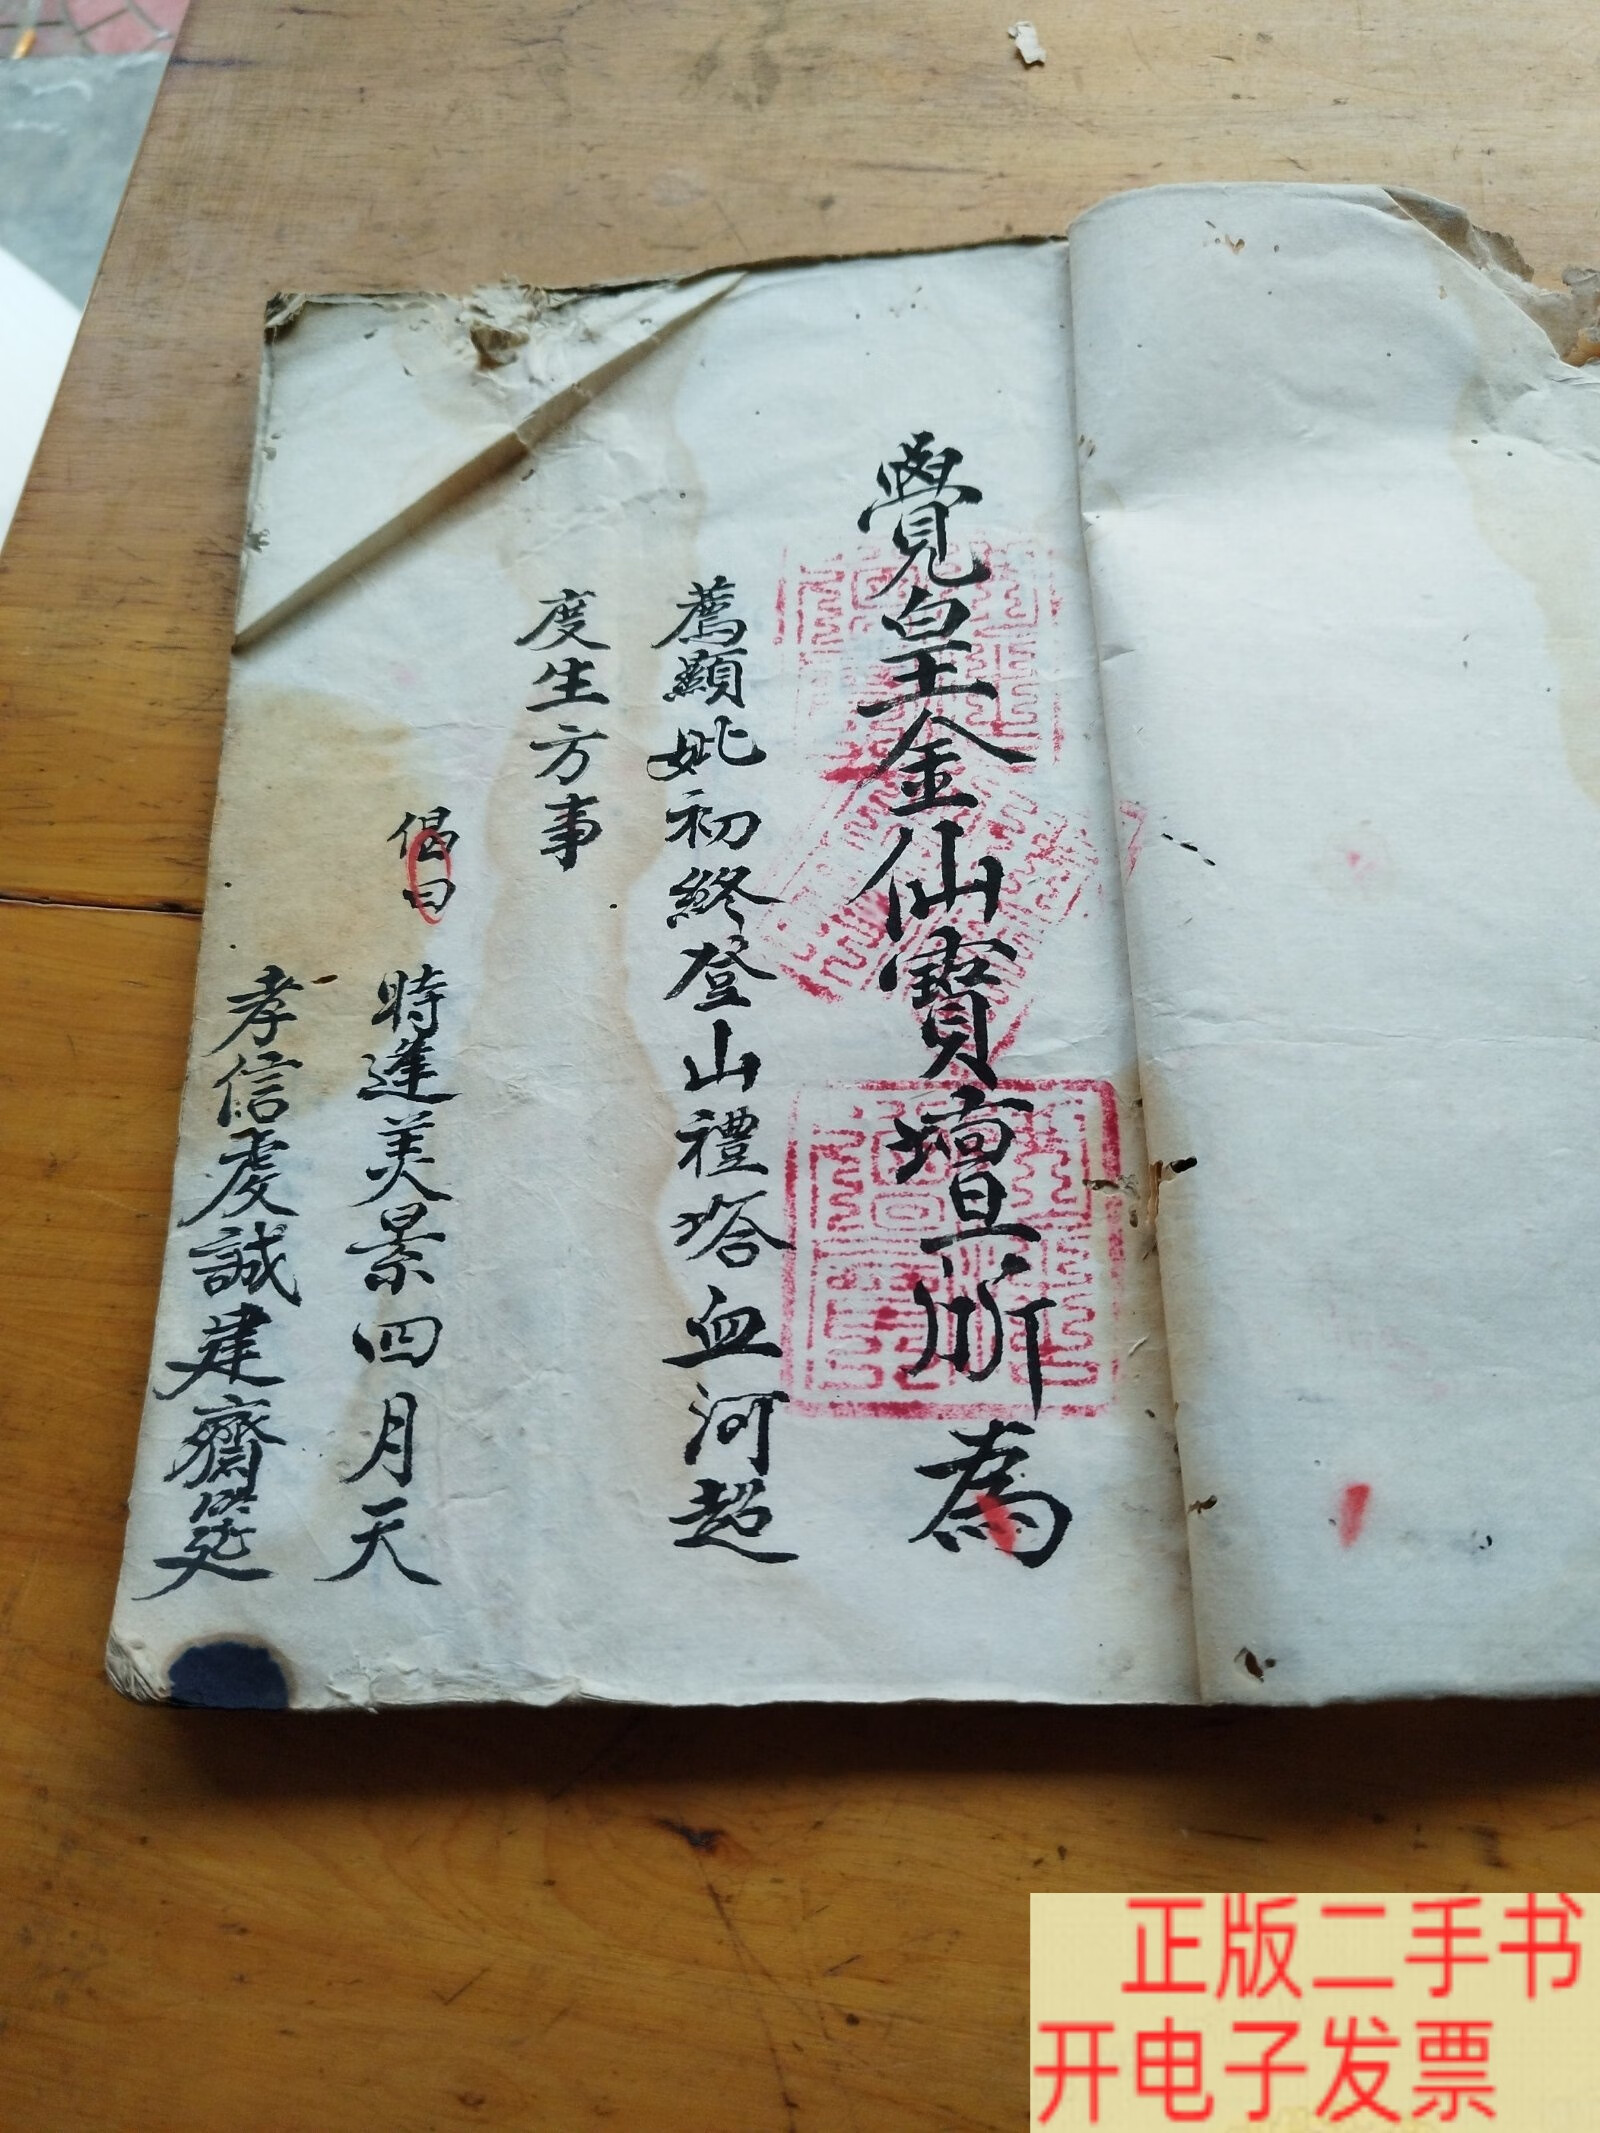 覺皇金仙寶壇所 為
薦顯妣初終登山禮塔血河超
度生方事
偈曰
時逢美景四月天
孝信虔誠建齋筵
正版二手书
开电子发票